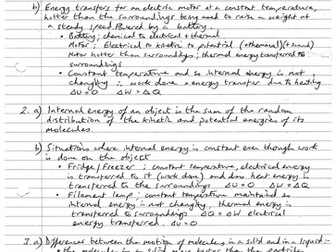 b) Energy transfers for an electric motor at a constant temperature,
hotter than the surroundings being used to raise a weight at
a steady speed. Powered by a battery.
• Battery; chemical to electrical + thermal
Motor; Electrical to kinetic to potential (+ thermal) (+ sound)
Motor hotter than surroundings; thermal energy transferred to
surroundings
• Constant temperature and so internal energy is not
changing ∴ work done = energy transfer due to heating
ΔU = 0 ΔW = ΔQ
2. a) Internal energy of an object is the sum of the random
distribution of the kinetic and potential energies of its
molecules.
b) Situations where internal energy is constant even though work
is done on the object
• Fridge/Freezer; constant temperature, electrical energy
is transferred to it (work done) and does heat energy is
transferred to the surroundings ΔU = 0 ΔQ = ΔW
• Filament lamp; constant temperature maintained so
internal energy is not changing, thermal energy is
transferred to surroundings ΔQ = ΔW electrical
energy transferred. ΔU = 0
3. a) Differences between the motion of molecules in a solid and in a liquid